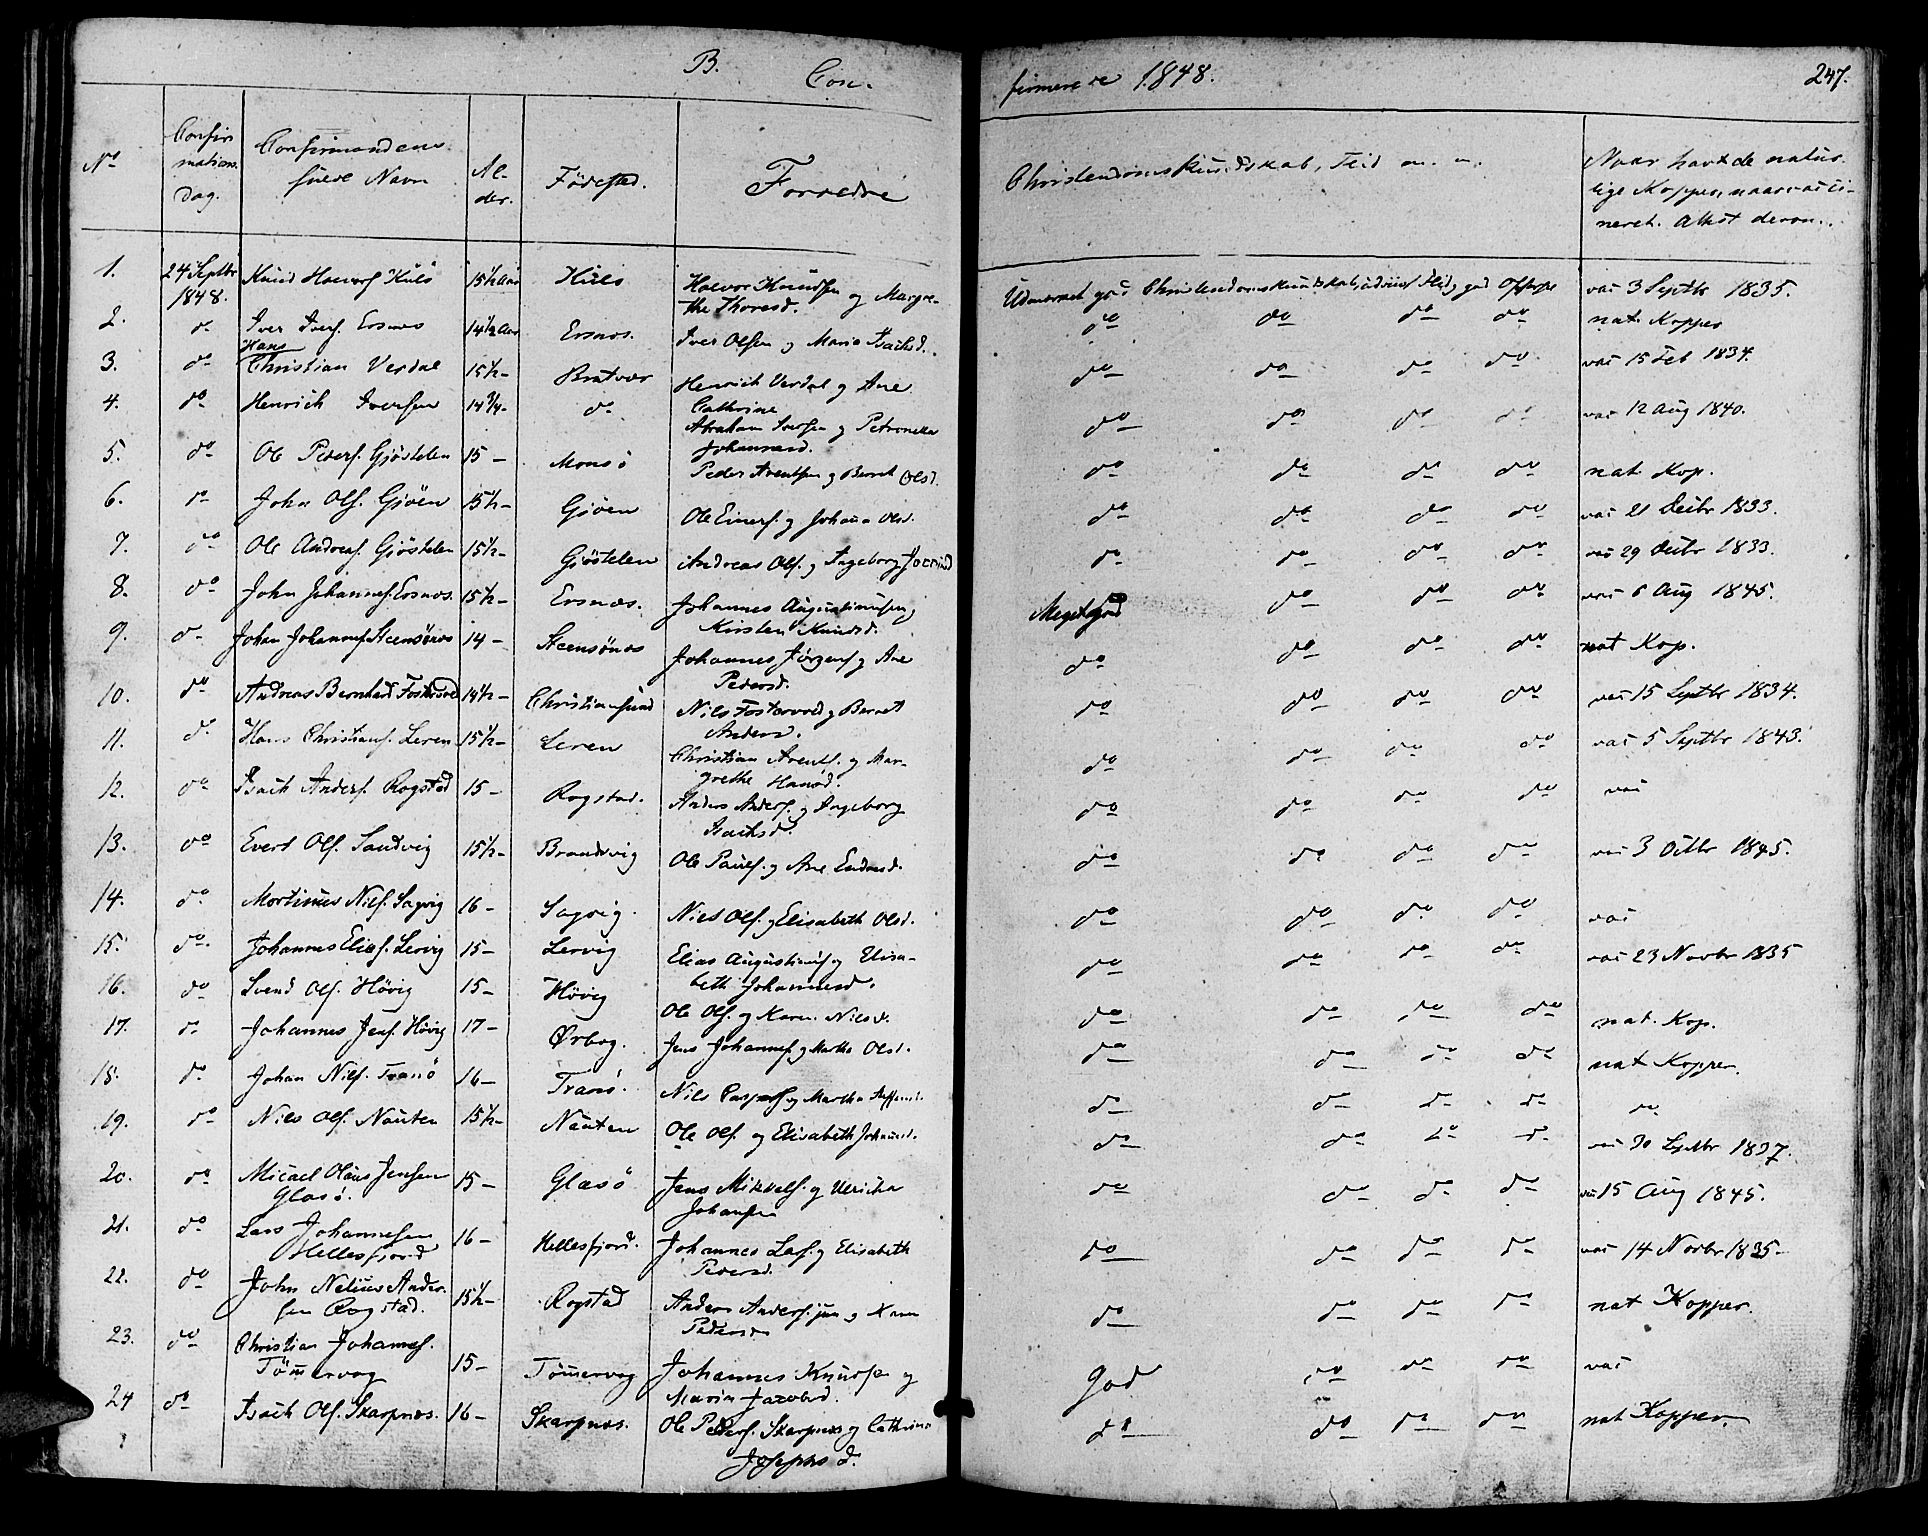 B.
Con-
firmerede 1848.
247.
No
Confir
mations.
Dag.
Confirmandens
fulde Navn
Al-
der.
Födested.
Forældre
Christendomskundskab, Flid m. m.
Naar havt de natur-
lige Kopper, naar vacci-
neret. Attest derom.
1. 24 Septbr 1848. Knud Halvors Huls 15½ Aar Huls Halvor Knudsen og Margre-
the Thoresd. Udmærket god Christendomskundskab, udviist Flid, god Opførsel vac 3 Septbr 1835.
2. do Iver Ivers. Ersnes 14½ Aar Ersnes. Iver Olsen og Maria Isachsd. do do do do nat. Kopper
3. do Hans
Christian Verdal 15½ - Bratvær Henrich Verdal og Ane
Cathrine do do do do vac 15 Feb 1834.
4. do Henrich Iversen 14¾ - do Abraham Iversen og Petronella
Johannesd. do do do do vac 12 Aug 1840.
5. do Ole Peders. Gjöstelen 15 - Monsö Peder Arentsen og Berret Olsd. do do do do nat. Kop.
6. do John Ols. Gjöen 15½ - Gjöen Ole Einers. og Johana Olsd. do do do do vac 21 Decbr 1833.
7. do Ole Andreas. Gjöstelen 15½ - Gjöstelen Andreas Ols. og Ingeborg do do do do vac 29 Octbr 1833.
8. do John Johannes. Ersnes. 15½ - Ersnes. Johannes Augustinusen og
Kirsten Knudsd. Meget god do do do vac 6 Aug 1845.
9. do Johan Johannes. Steensönes 14 - Steensönes Johannes Jörgens. og Ane
Pedersd. do do do do nat Kop.
10. do Andreas Bernhard Fostervold 14½ - Christiansund Nils Fostervold og Berret
Andersd. do do do do vac 15 Septbr 1834.
11. do Hans Christians. Leren 15½ - Leren Christian Arents. og Mar-
grethe Hansd. do do do do vac 5 Septbr 1843.
12. do Isach Anders. Rogstad 15 - Rogstad. Anders Anders. og Ingeborg
Isachsd. do do do do vac
13. do Evert Ols. Sandvig 15½ - Brandvig Ole Pauls. og Ane Endresd. do do do do vac 3 Octbr 1845.
14. do Mortinus Nils. Sagvig 16 - Sagvig. Niels Ols. og Elisabeth Olsd. do do do do vac
15. do Johannes Elias. Lervig 15 - Lervig Elias Augustinus. og Elisa-
beth Johannesd. do do do do vac 23 Novbr 1835
16. do Svend Ols. Hövig 15 - Hövig Ole Ols. og Karen Nilsd. do do do do nat. Kop.
17. do Johannes Jens. Hövig 17 - Ørbog. Jens Johannes. og Martha Olsd. do do do do nat Kopper.
18. do Johan Nils. Tranö 16 - Tranö. Nils Caspers. og Martha Steffensd. do do do do do
19. do Nils Ols. Nauten 15½ - Nauten Ole Ols. og Elisabeth Johannesd. do do do do vac 30 Septbr 1837.
20. do Micael Olaus Jensen
Glasö. 15 - Glasö Jens Mikkels. og Ulricka
Johansen do do do do vac 15 Aug 1845.
21. do Lars Johannesen
Hellesfjord 16 - Hellesfjord. Johannes Las. og Elisabeth
Pedersd. do do do do vac 14 Novbr 1835-
22. do John Nelius Ander-
sen Rogstad. 15½ - Rogstad Anders Anders. jun og Karen
Pedersd. do do do do nat Kopper.
23. do Christian Johannes.
Tömmervog 15 - Tömmervog Johannes Knudsen og
Maria Jacobsd. God do do do vac
24 do Isach Ols. Skarpnes. 16 - Skarpnes. Ole Peders. Skarpnes og Cathrina
Josephs d. do do do do nat Kopper.